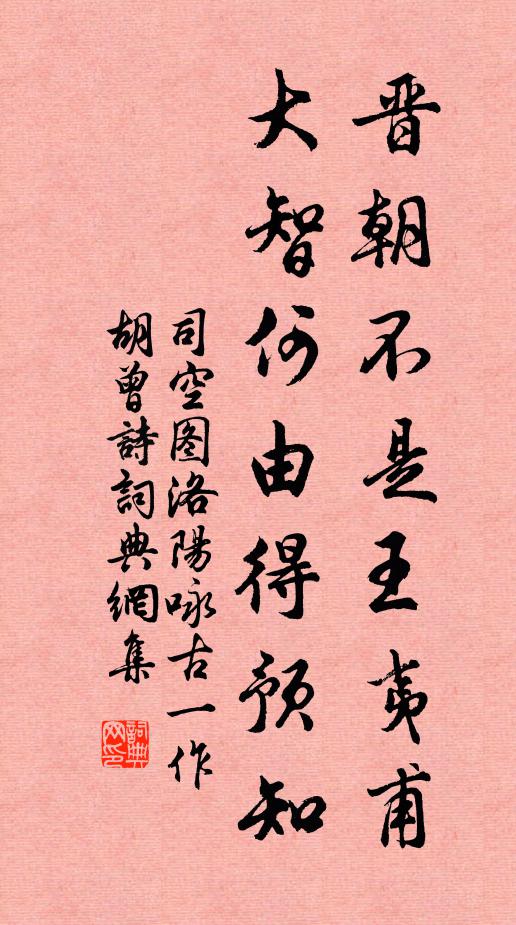 晋朝不是王夷甫
大智何由得预知
司空图洛陽咏古一作
胡曾詩詞典網集
詞典
网印